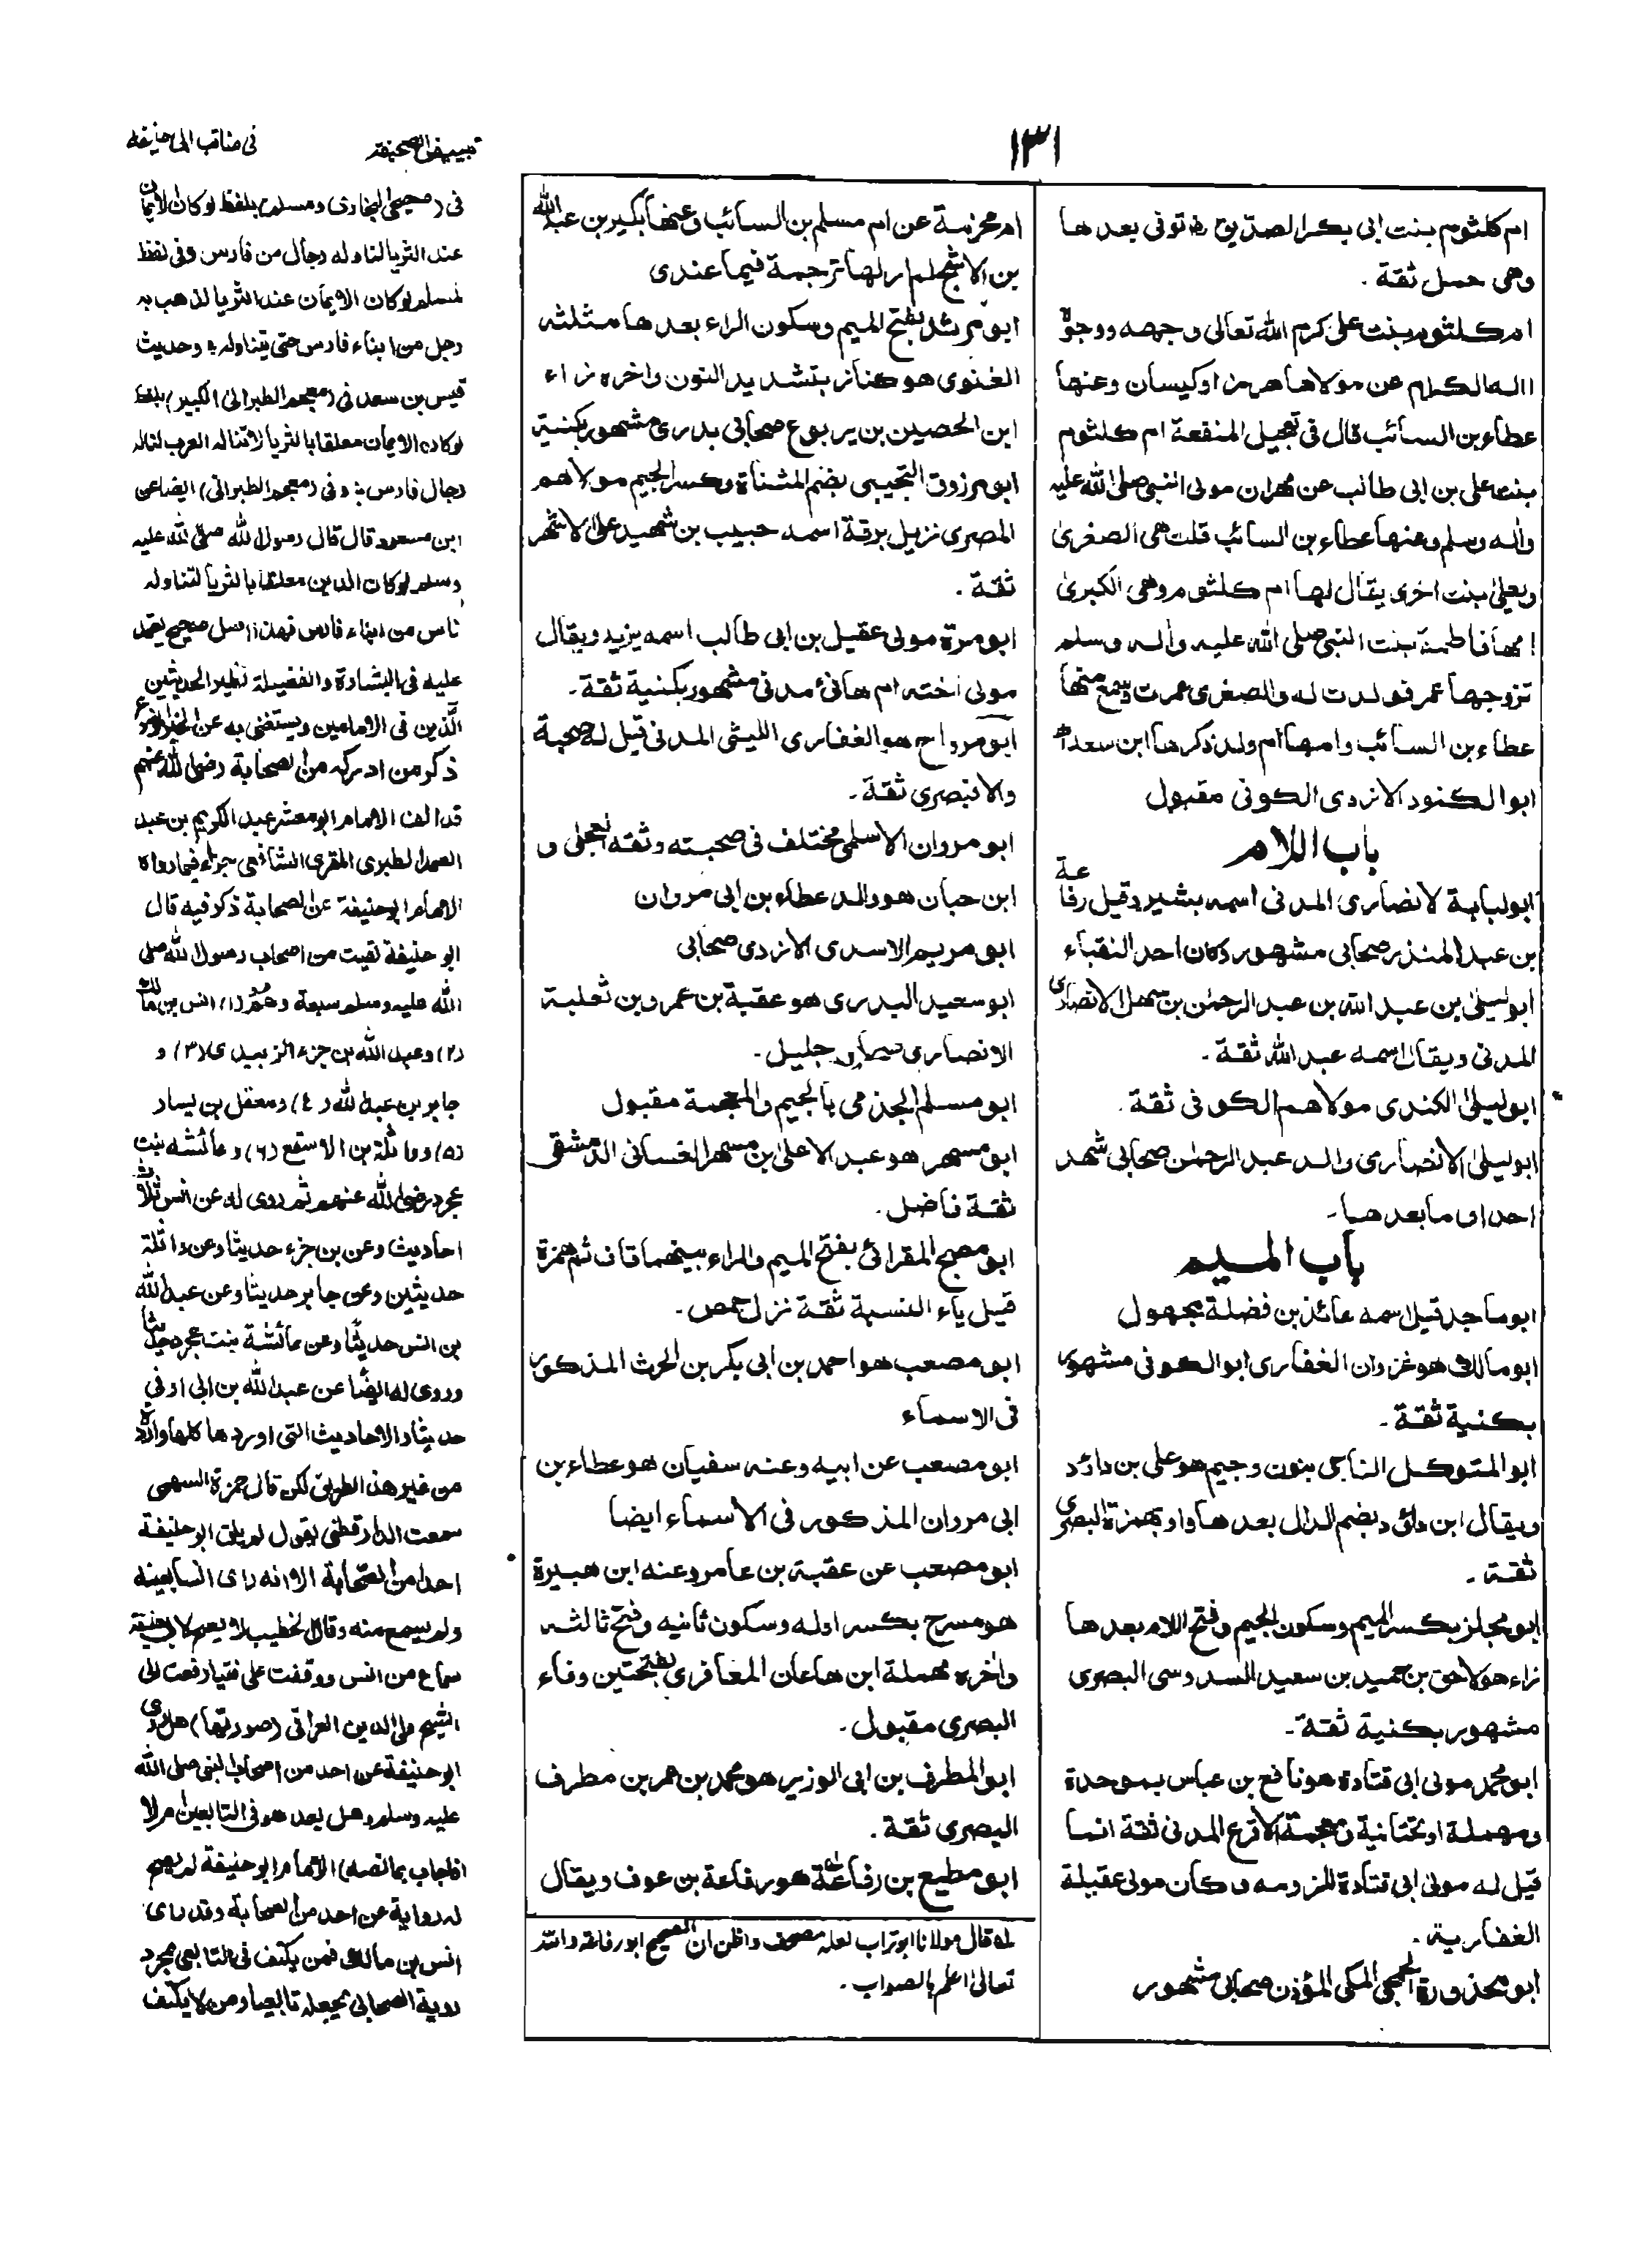 ١٣١
ام كلثوم بنت ابى بكر الصديق رض توفى بعدها
وهى حمل ثقة .
ام كلثوم بنت على كرم الله تعالى وجهه ووجوه
اله الكرام عن مولاها هرمز او كيسان وعنها
عطاء بن السائب قال فى تعجيل المنفعة ام كلثوم
بنت على بن ابى طالب عن مهران مولى النبى صلى الله عليه
واله وسلم وعنها عطاء بن السائب قلت هى الصغرى
وبعلى بنت اخرى يقال لها ام كلثوم وهى الكبرى
امها فاطمة بنت النبى صلى الله عليه واله وسلم
تزوجها عمر فولدت له والصغرى عمرت وسمع منها
عطاء بن السائب وامها ام ولد ذكرها ابن سعد اھ
ابو الكنود الازدى الكوفى مقبول
باب اللام
ابو لبابة لانصارى المدنى اسمه بشير وقيل رفاعة
بن عبد المنذر صحابى مشهور وكان احد النقباء
ابو ليلى بن عبد الله بن عبد الرحمن بن سهل الانصارى
المدنى ويقال اسمه عبد الله ثقة .
ابو ليلى الكندى مولاهم الكوفى ثقة .
ابو ليلى الانصارى والد عبد الرحمن صحابى شهد
احدا وما بعدها .
باب الميم
ابو ماجد قيل اسمه عائذ بن فضلة مجهول
ابو مالك هو غزوان الغفارى ابو الكوفى مشهور
بكنية ثقة .
ابو المتوكل الناجى بنون وجيم هو على بن داؤد
ويقال ابن دائود بضم الدال بعدها واو بهمزة البصرى
ثقة .
ابو مجلز بكسر الميم وسكون الجيم وفتح اللام بعدها
زاء هو لاحق بن حميد بن سعيد السدوسى البصرى
مشهور بكنية ثقة .
ابو محمد مولى ابى قتادة هو نافع بن عباس بموحدة
ومهملة او بتحتانية ومعجمة الاقرع المدنى ثقة انما
قيل له مولى ابى قتادة للزومه وكان مولى عقيلة
الغفارية .
ابو محذورة الجمحى المكى المؤذن صحابى مشهور
ام محرمة عن ام مسلم بن السائب وعنها بكير بن عبد الله
بن الاشج لم ار لها ترجمة فيما عندى
ابو مرثد بفتح الميم وسكون الراء بعدها مثلثه
الغنوى هو كناز بتشديد النون واخره زاء
ابن الحصين بن يربوع صحابى بدرى مشهور بكنية
ابو مرزوق التجيبى بضم المثناة وكسر الجيم مولاهم
المصرى نزيل برقة اسمه حبيب بن شهيد على الاشهر
ثقة .
ابو مرة مولى عقيل بن ابى طالب اسمه يزيد ويقال
مولى اخته ام هانئ مدنى مشهور بكنية ثقة .
ابو مرواح هو الغفارى الليثى المدنى قيل له صحبة
والا نبصرى ثقة .
ابو مروان الاسلمى مختلف فى صحبته وثقه العجلى و
ابن حبان هو والد عطاء بن ابى مروان
ابو مريم الاسدى الازدى صحابى
ابو سعيد البدرى هو عقبة بن عمرو بن ثعلبة
الانصارى جليل .
ابو مسلم الجذمى بالجيم والمعجمة مقبول
ابو مسهر هو عبد الاعلى بن مسهر الغسانى الدمشقى
ثقة فاضل .
ابو مصبح المقرائى بفتح الميم والراء بينهما قاف ثم همزة
قبل ياء النسبة ثقة نزل حمص .
ابو مصعب هو احمد بن ابى بكر بن الحرث المذكور
فى الاسماء
ابو مصعب عن ابيه وعنه سفيان هو عطاء بن
ابى مروان المذكور فى الاسماء ايضا
ابو مصعب عن عقبة بن عامر وعنه ابن هبيرة
هو مسرح بكسر اوله وسكون ثانيه وفتح ثالثه
واخره مهملة ابن هاعان المعافرى بفتحتين وفاء
البصرى مقبول .
ابو المطرف بن ابى الوزير هو محمد بن عمر بن مطرف
البصرى ثقة .
ابو مطيع بن رفاعة له هو رفاعة بن عوف ويقال
له قال مولانا ابو تراب لعله مصحف واظن ان الصحيح ابو رفاعه والله
تعالى اعلم بالصواب .
تبييض الصحيفة
فى مناقب ابى حنيفه
فى (صحيحى البخارى ومسلم) بلفظ لو كان الايمان
عند الثريا لتناوله رجال من فارس وفى لفظ
لمسلم لو كان الايمان عند الثريا لذهب به
رجل من ابناء فارس حتى يتناوله وحديث
قيس بن سعد فى (معجم الطبرانى الكبير) بلفظ
لو كان الايمان معلقا بالثريا لا تناله العرب لناله
رجال فارس وفى (معجم الطبرانى) ايضا عن
ابن مسعود قال قال رسول الله صلى الله عليه
وسلم لو كان الدين معلقا بالثريا لتناوله
ناس من ابناء فارس فهذا اصل صحيح يعتمد
عليه فى البشارة والفضيلة نظير الحديثين
الذين فى الامامين ويستغنى به عن الخبر الموضوع
ذكر من ادركه من الصحابة رضى الله عنهم
قد الف الامام ابو معشر عبد الكريم بن عبد
الصمد الطبرى المقرى الشافعى جزاء فيما رواه
الامام ابو حنيفة عن الصحابة ذكر فيه قال
ابو حنيفة لقيت من اصحاب رسول الله صلى
الله عليه وسلم سبعة وهم (١) انس بن مالك
(٢) وعبد الله بن جزء الزبيدى (٣) و
جابر بن عبد الله (٤) ومعقل بن يسار
(٥) وواثلة بن الاسقع (٦) وعائشه بنت
عجرد رضى الله عنهم ثم روى له عن انس ثلاث
احاديث وعن بن جزء حديثا وعن واثلة
حديثين وعن جابر حديثا وعن عبد الله
بن انس حديثا وعن عائشة بنت عجرد حديثا
وروى له ايضا عن عبد الله بن ابى اوفى
حديثا والاحاديث التى اوردها كلها واردة
من غير هذ الطريق لكن قال حمزة السهمى
سمعت الدارقطنى يقول لم يلق ابو حنيفة
احدا من الصحابة الا انه راى انسا بعينه
ولم يسمع منه وقال الخطيب لا يصح لابى حنيفة
سماع من انس ووقفت على فتيا رفعت الى
الشيخ ولى الدين العراقى (صورتها) هل روى
ابو حنيفة عن احد من اصحاب النبى صلى الله
عليه وسلم وهل يعد هو فى التابعين ام لا
(فاجاب بما نصه) الامام ابو حنيفة لم يصح
له رواية عن احد من الصحابة وقد راى
انس بن مالك فمن يكتف فى التابعى بمجرد
روية الصحابى يجعله تابعيا ومن لا يكتف